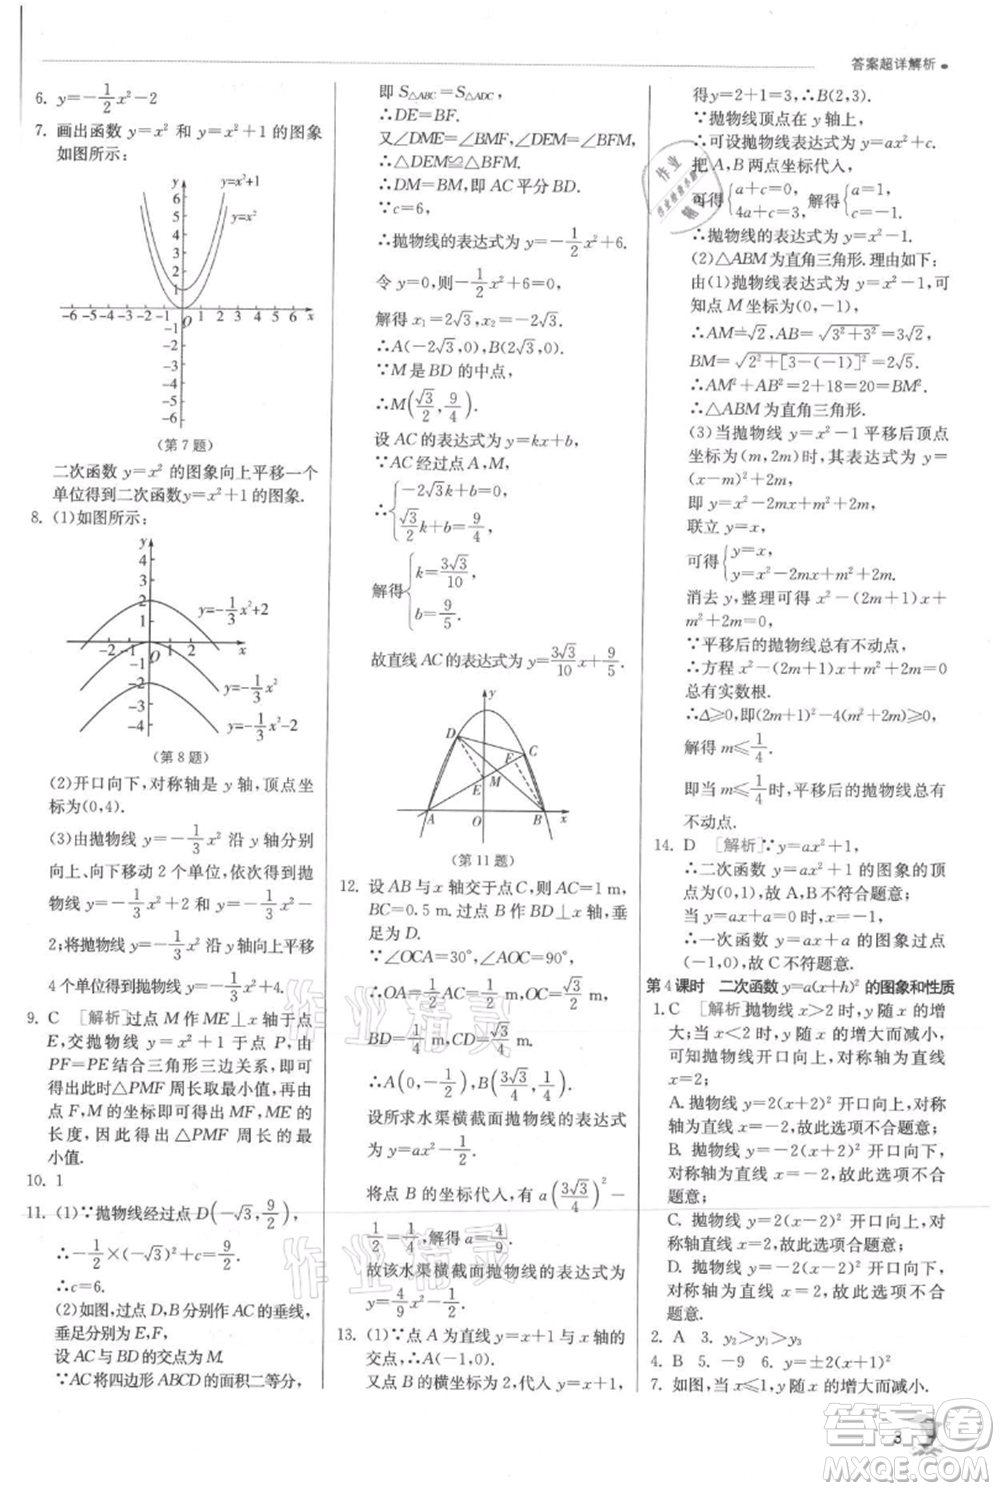 答案超详解析
6. y=-\frac{1}{2}x²-2
7. 画出函数 y=x² 和 y=x²+1 的图象
如图所示:
y
6
5
4
3
2
1
y=x²+1
y=x²
-6-5-4-3-2-1 O 1 2 3 4 5 6 x
-1
-2
-3
-4
-5
-6
(第 7 题)
二次函数 y=x² 的图象向上平移一个
单位得到二次函数y=x²+1 的图象.
8. (1)如图所示:
y
4
3
2
1
y=-\frac{1}{3}x²+2
-2 -1 O 1 2 x
-1
-2
-3
-4
y=-\frac{1}{3}x²
y=-\frac{1}{3}x²-2
(第 8 题)
(2)开口向下,对称轴是 y 轴,顶点坐
标为(0,4).
(3)由抛物线 y=-\frac{1}{3}x² 沿 y 轴分别
向上、向下移动 2 个单位,依次得到抛
物线 y=-\frac{1}{3}x²+2 和 y=-\frac{1}{3}x²-
2;将抛物线 y=-\frac{1}{3}x² 沿 y 轴向上平移
4 个单位得到抛物线 y=-\frac{1}{3}x²+4.
9. C [解析]过点 M 作ME⊥x 轴于点
E,交抛物线 y=\frac{1}{4}x²+1 于点 P,由
PF=PE结合三角形三边关系,即可
得出此时△PMF 周长取最小值,再由
点 F,M 的坐标即可得出 MF,ME 的
长度,因此得出△PMF 周长的最
小值.
10. 1
11. (1)∵抛物线经过点 D(-√3,\frac{9}{2}),
∴-\frac{1}{2}×(-√3)²+c=\frac{9}{2}.
∴c=6.
(2)如图,过点 D,B 分别作 AC 的垂线,
垂足分别为 E,F,
设 AC与BD 的交点为 M.
∵AC将四边形 ABCD 的面积二等分,
即 S△ABC=S△ADC,
∴DE=BF.
又∠DME=∠BMF,∠DEM=∠BFM,
∴△DEM≌△BFM.
∴DM=BM,即 AC 平分 BD.
∵c=6,
∴抛物线的表达式为 y=-\frac{1}{2}x²+6.
令 y=0,即-\frac{1}{2}x²+6=0,
解得 x₁=2√3,x₂=-2√3.
∴A(-2√3,0),B(2√3,0).
∵M 是 BD 的中点,
∴M(\frac{√3}{2},\frac{9}{4}).
设 AC 的表达式为 y=kx+b,
∵AC 经过点 A,M,
∴{-2√3k+b=0,
\frac{√3}{2}k+b=\frac{9}{4}.
解得{k=\frac{3√3}{10},
b=\frac{9}{5}.
故直线 AC 的表达式为 y=\frac{3√3}{10}x+\frac{9}{5}.
y
D
F
C
M
E
A O B x
(第 11 题)
12. 设 AB 与 x 轴交于点 C,则 AC=1 m,
BC=0.5 m. 过点 B 作 BD⊥x 轴,垂
足为 D.
∵∠OCA=30°,∠AOC=90°,
∴OA=\frac{1}{2} m,OC=\frac{√3}{2} m,CD=\frac{√3}{4} m,
BD=\frac{1}{4} m.
∴A(0,-\frac{1}{2}),B(\frac{3√3}{4},\frac{1}{4}).
设所求水渠横截面抛物线的表达式
为y=ax²-\frac{1}{2}.
将点 B 的坐标代人,有 a(\frac{3√3}{4})²-
\frac{1}{2}=\frac{1}{4},解得 a=\frac{4}{9}.
故该水渠横截面抛物线的表达式为
y=\frac{4}{9}x²-\frac{1}{2}.
13. (1)∵点 A为直线 y=x+1 与 x 轴的
交点,∴A(-1,0).
又点 B 的横坐标为 2,代人 y=x+1,
得y=2+1=3,∴B(2,3).
∵抛物线顶点在 y 轴上,
∴可设抛物线表达式为 y=ax²+c.
把 A,B 两点坐标代人,
可得{a+c=0, 4a+c=3, 解得{a=1, c=-1.
∴抛物线的表达式为 y=x²-1.
(2)△ABM为直角三角形.理由如下:
由(1)抛物线表达式为 y=x²-1,可
知点 M 坐标为(0,-1),
∴AM=√2,AB=√(3²+3²)=3√2,
BM=√(2²+[3-(-1)]²)=2√5.
∴AM²+AB²=2+18=20=BM².
∴△ABM为直角三角形.
(3)当抛物线 y=x²-1平移后顶点
坐标为(m,2m)时,其表达式为 y=
(x-m)²+2m,
即 y=x²-2mx+m²+2m,
联立 y=x,
可得{y=x,
y=x²-2mx+m²+2m.
消去 y,整理得 x²-(2m+1)x+
m²+2m=0,
∵平移后的抛物线总有不动点,
∴方程 x²-(2m+1)x+m²+2m=0
总有实数根.
∴Δ≥0,即(2m+1)²-4(m²+2m)≥0,
解得 m≤\frac{1}{4}.
即当 m≤\frac{1}{4}时,平移后的抛物线总有
不动点.
14. D [解析]∵y=ax²+1,
∴二次函数 y=ax²+1 的图象的顶
点为(0,1),故 A,B 不符合题意;
当 y=ax+a=0 时,x=-1,
∴一次函数 y=ax+a 的图象过点
(-1,0),故 C 不符合题意.
第 4 课时 二次函数 y=a(x+h)² 的图象和性质
1. C [解析]抛物线x>2时,y随x的增
大;当 x<2 时,y 随 x 的增大而减小,
可知抛物线开口向上,对称轴为直线
x=2.
A. 抛物线 y=2(x+2)² 开口向上,对称
轴为直线x=-2,故此选项不合题意;
B. 抛物线 y=-2(x+2)² 开口向下,
对称轴为直线 x=-2,故此选项不合
题意;